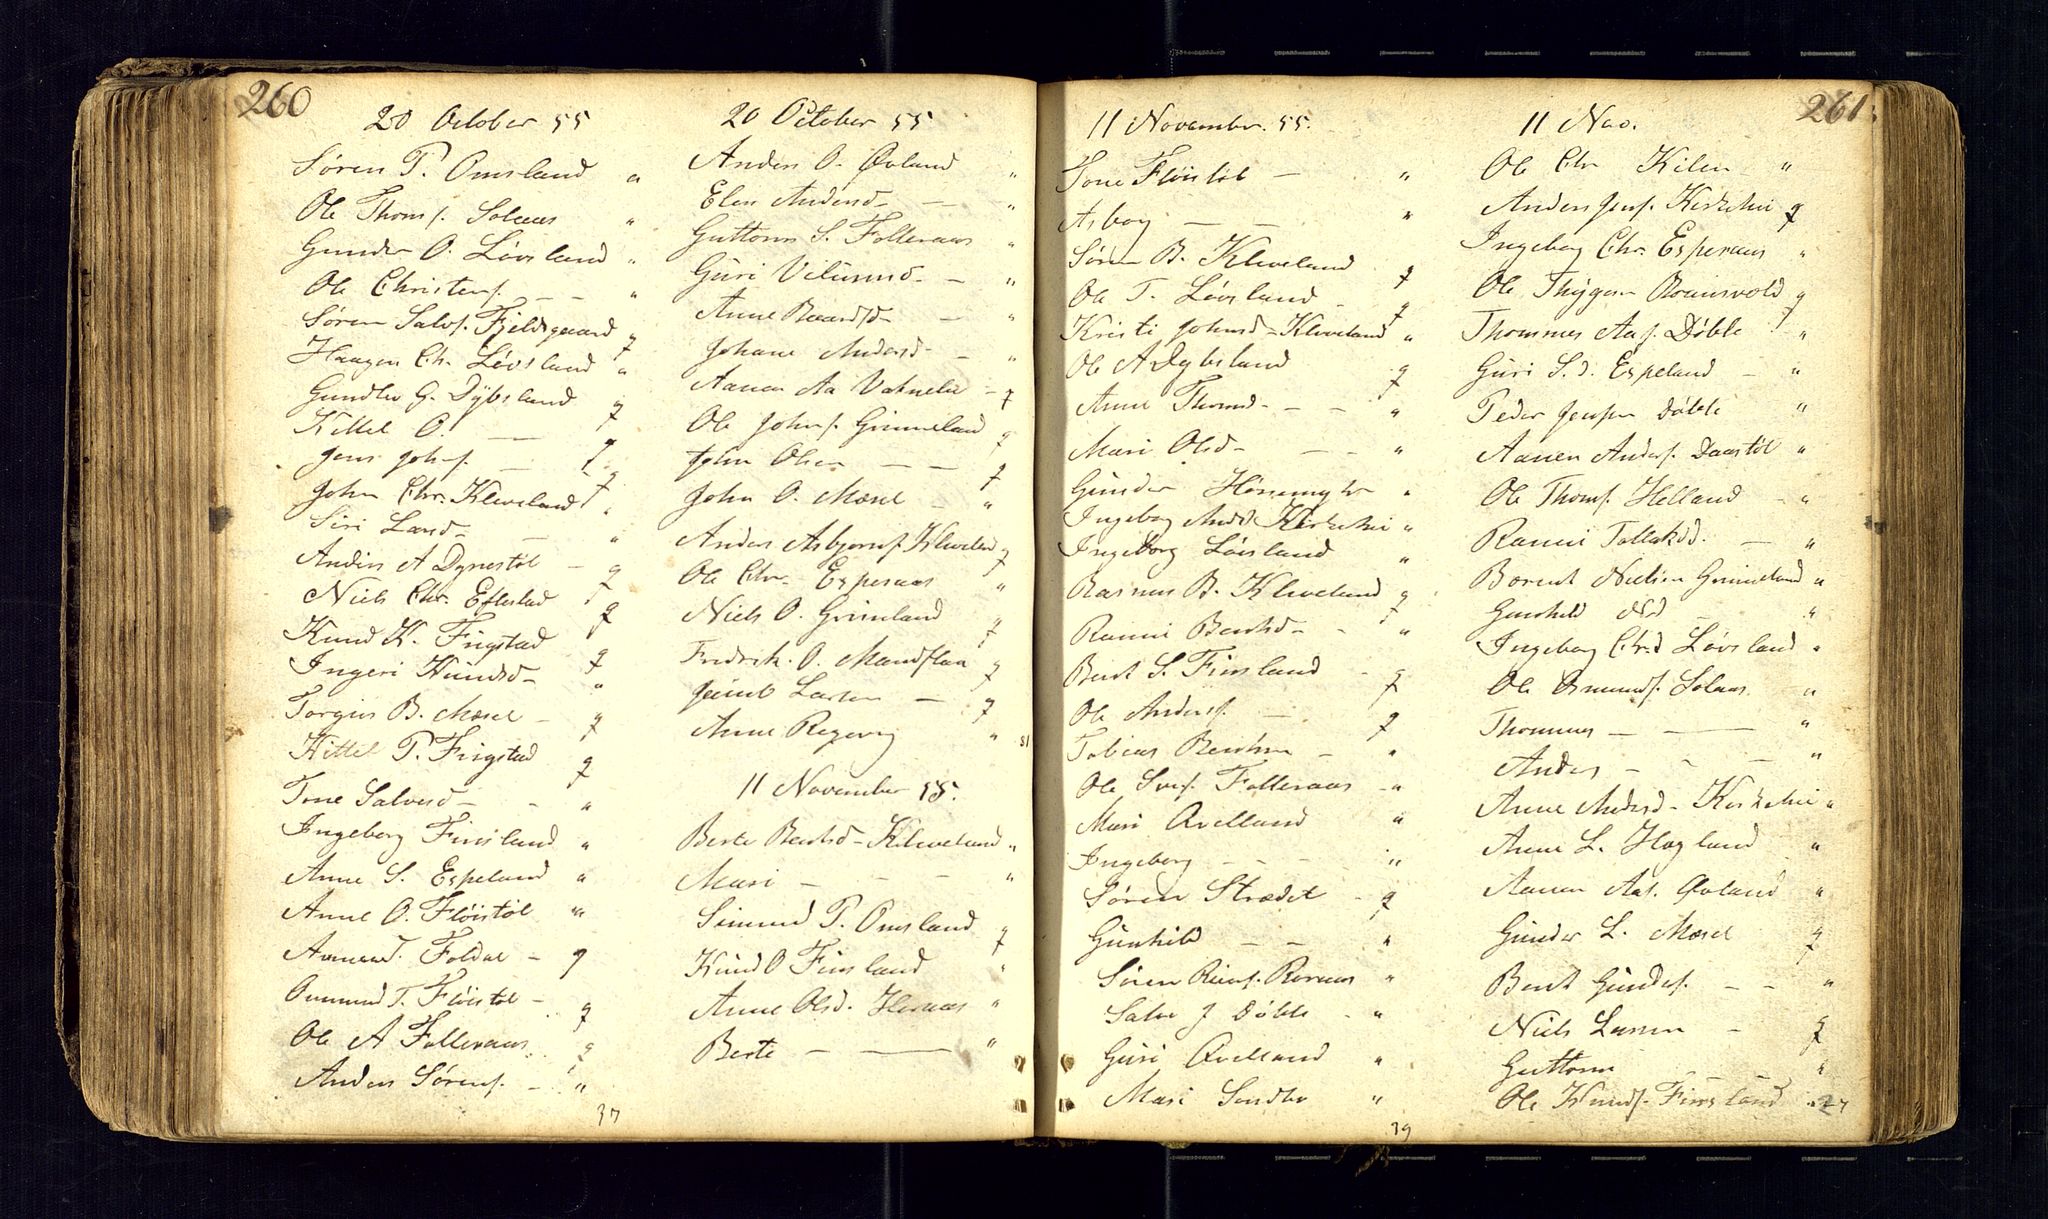 260
20 October 55
Søren P. Omsland "
Ole Thoms. Solaas "
Gunder O. Løvsland "
Ole Christens. - - "
Søren Salvs. Fjeldsgaard q
Haagen Chr. Løvsland "
Gundler G. Dybsland q
Kittel O. — q
Jens Johs. — q
John Chr. Kleveland q
Siri Larsd - — "
Anders A Dynestøl - q
Niels Chr. Eftestad q
Knud K. Frigstad q
Ingeri Knudsd - "
Torgius B. Mæsel - q
Kittel P. Frigstad q
Tone Salvesd - - "
Ingeborg Finsland "
Anne S. Espeland "
Anne O. Fløistøl "
Foldal - q
Omund T. Fløistøl - q
Ole A Folleraas q
Anders Sørens. - "
37
20 October 55
Anders O. Øvland "
Elen Andersd - — "
Guttorm S. Folleraas "
Guri Villumsd - — "
Anne Baardsd - — "
Johane Andersd - — "
Aanen Aa Vatnelie - q
Ole Johns. Grimeland q
John Olsen — — q
John O. Mæsel - "
Anders Asbjørns. Kleveland q
Ole Chr. Esperaas "
Niels O. Grimland q
Fredrik. O. Mandflaa q
Jacob Larsen — q
Anne Regevig "
31
11 November 55.
Berte Bentsd - Kleveland "
Mari - - - "
Simund P. Omsland q
Knud O Finsland "
Anne Olsd. Heraas "
Berte — — "
11 November. 55.
Tone Fløistøl — "
Asbog — — "
Søren B. Kleveland q
Ole T. Løvsland - q
Kristi Johnsd - Kleveland "
Ole A Dybsland q
Anne Thomsd - - - "
Mari Olsd - - - "
Gunder Hønemyhr "
Ingeborg Andsd Kirkehei "
Ingeborg Løvsland "
Rasmus B. Kleveland q
Ranni Bentsd - - "
Bent S. Finsland - q
Ole Anders. — q
Tobias Bentsen - "
Ole Svs. Folleraas - "
Mari Qvelland "
Ingeborg - - - "
Søren Strædet - q
Gunhild — - "
Søren Roraas "
Salve J Døble - "
Guri Qvelland "
Mari "
39
261
11 Nov.
Ole Chr Kilen "
Anders Jens. Kirkehei q
Ingeborg Chr. Esperaas "
Ole Thygesen Romsvold q
Thommes Aas. Døble - "
Guri S. d. Espeland - "
Peder Jensen Døble "
Aanen Anders. Daastøl "
Ole Thoms. Helland - "
Ranni Tollaksd. — "
Berent Nielsen Grimeland "
Gunhild Olsd — "
Ingeborg Chr.d Løvsland "
Ole Osmunds. Solaas "
Thommes — — "
Anders - - - "
Anne Andersd - Kirkehei "
Anne L. Høgland "
Aanen Aas. Øvland "
Gunder L. Mæsel q
Bent Gunders. - - "
Niels Larsen - q
Guttorm "
Ole Knuds. Finsland " 27